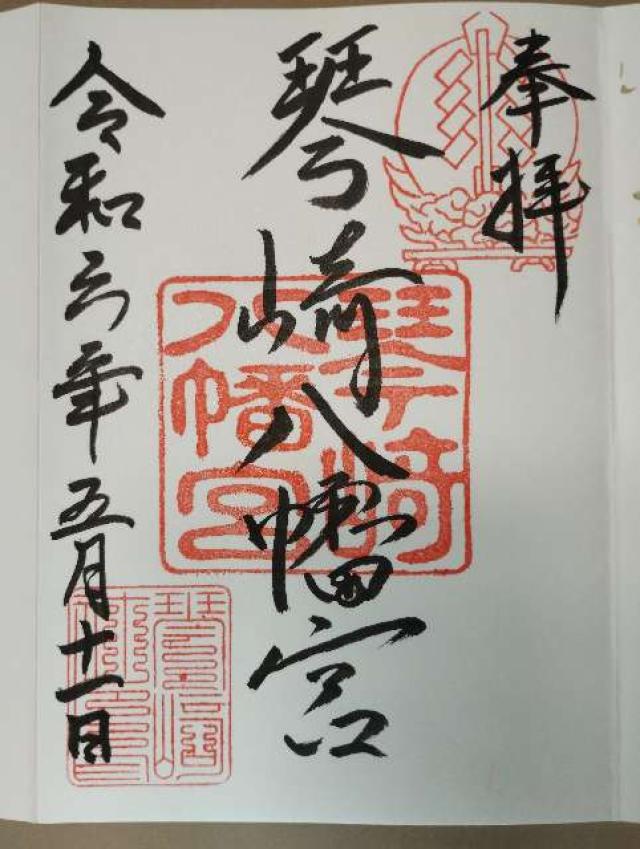 奉拝
琴崎八幡宮
令和六年五月十一日
琴崎
八幡宮